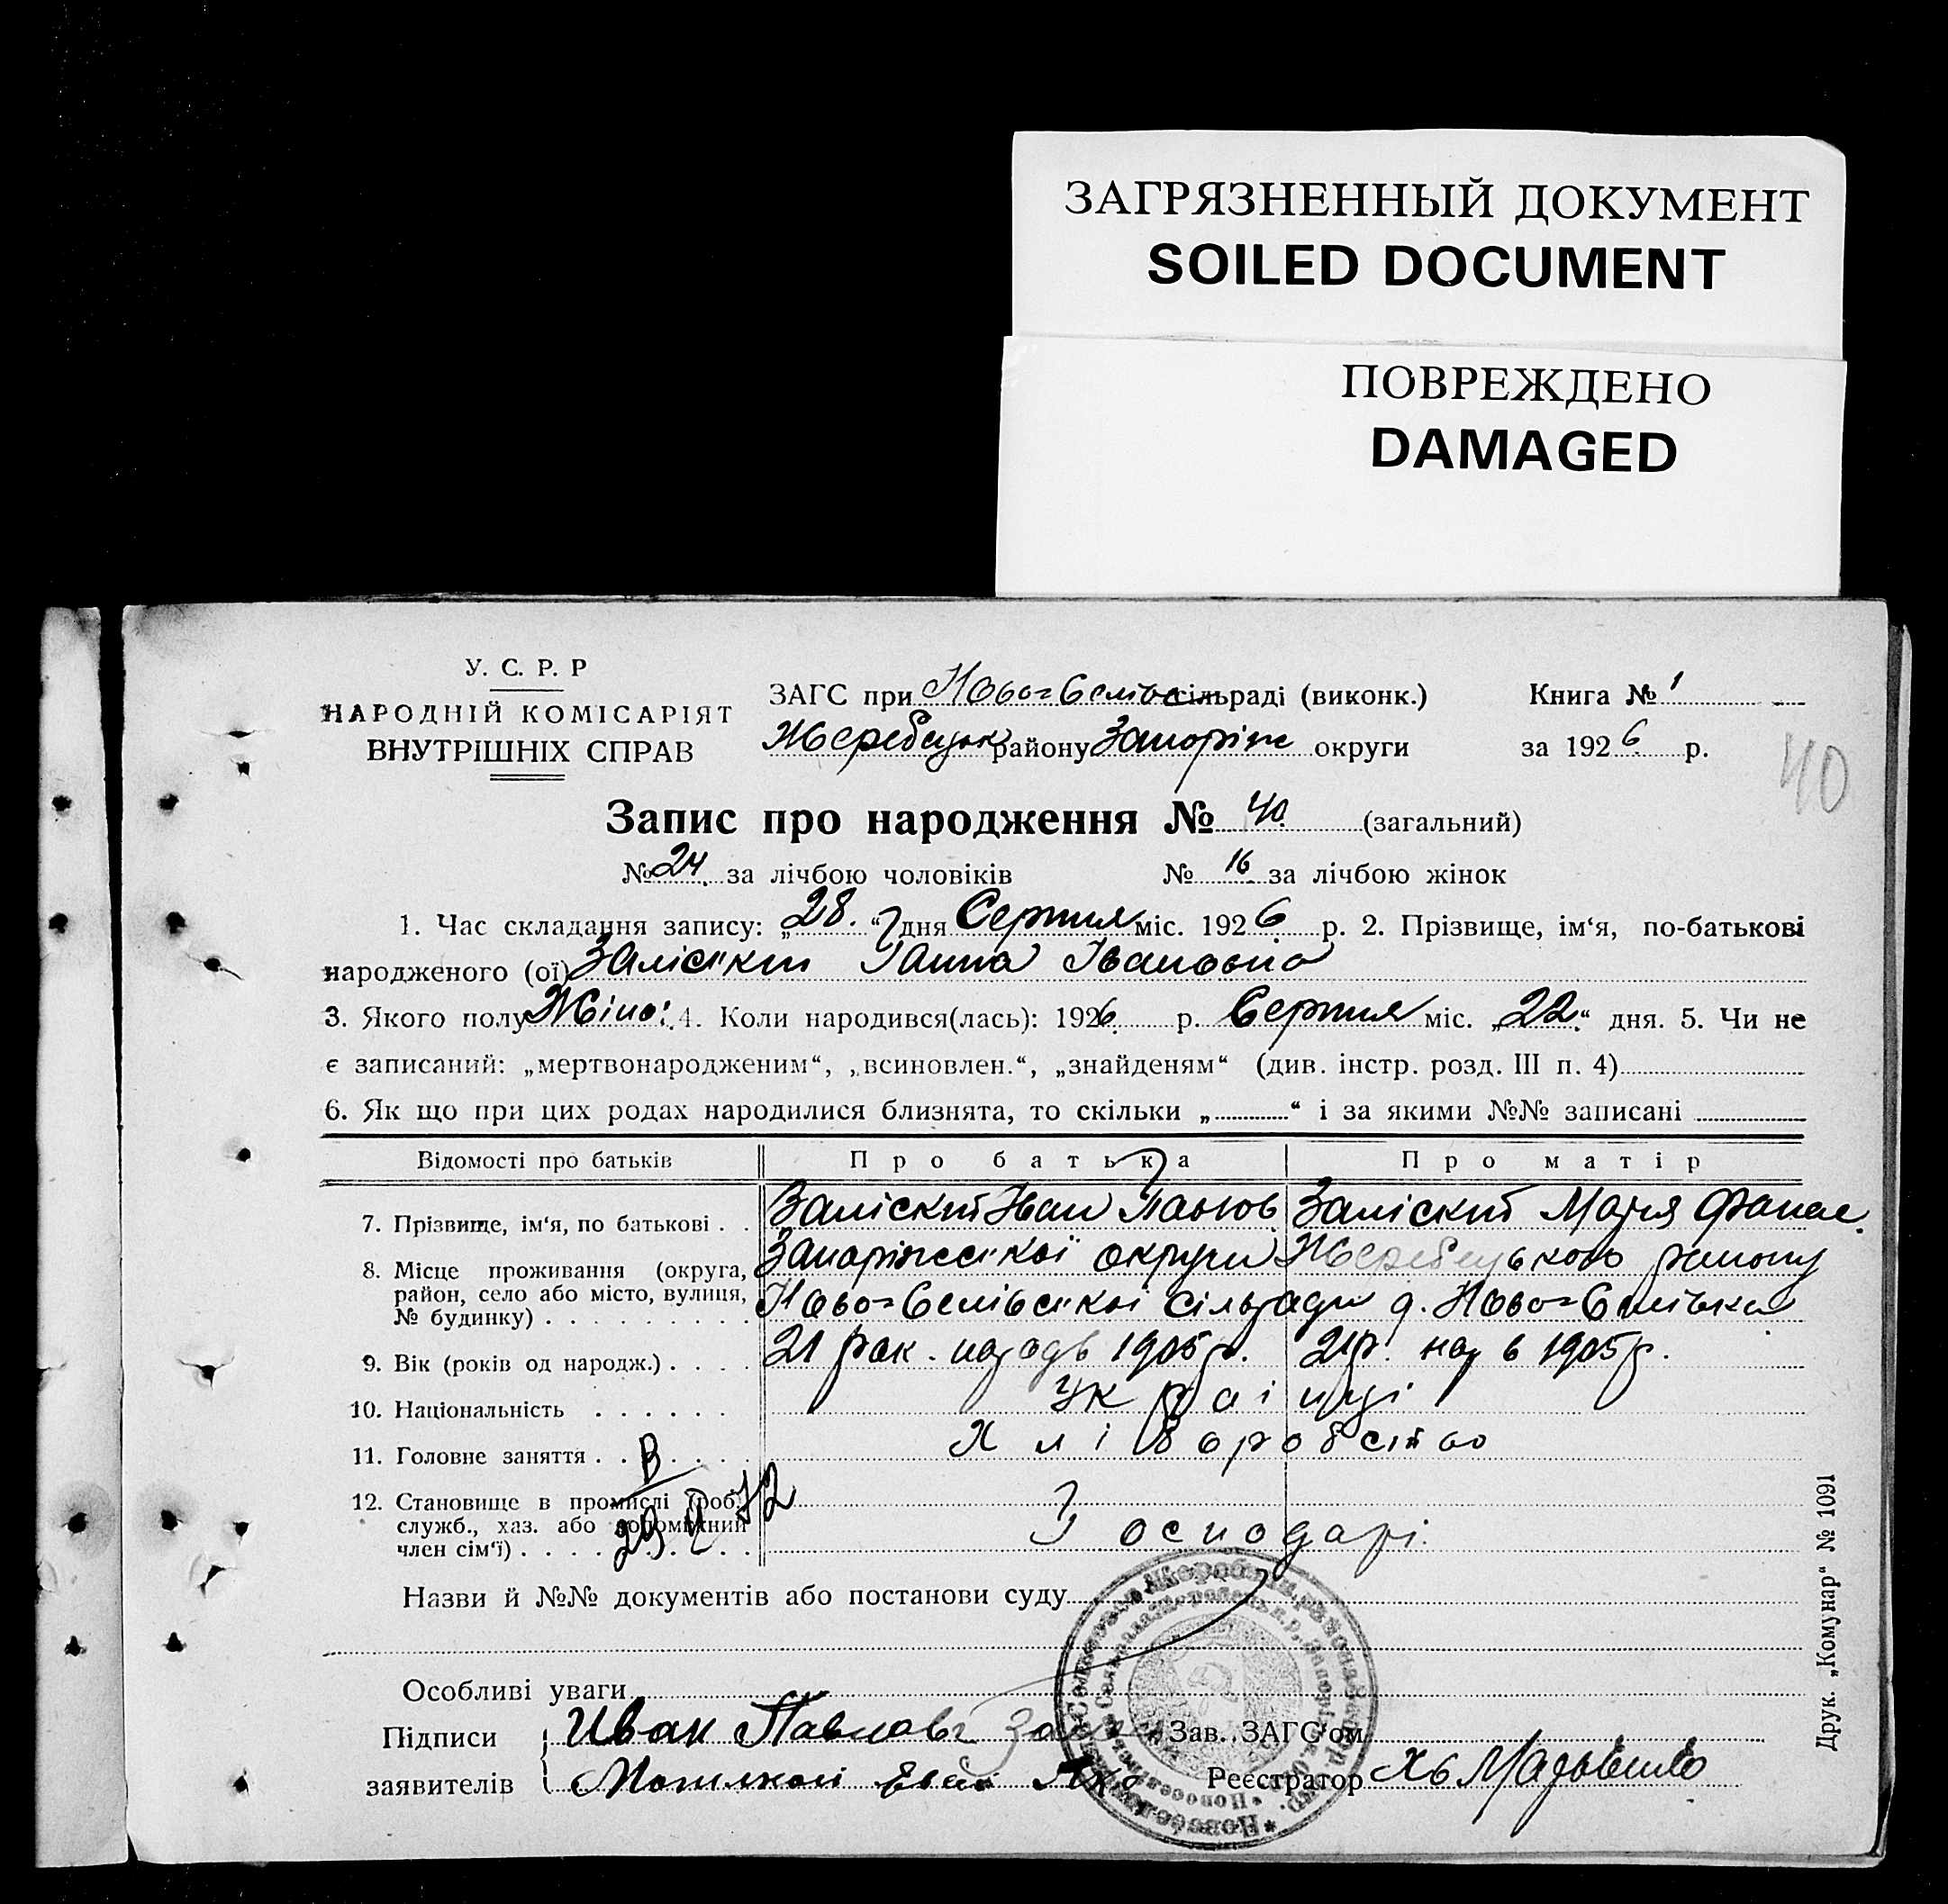 ЗАГРЯЗНЕННЫЙ ДОКУМЕНТ
SOILED DOCUMENT
ПОВРЕЖДЕНО
DAMAGED
У. С. Р. Р
НАРОДНІЙ КОМІСАРІЯТ
ВНУТРІШНІХ СПРАВ
ЗАГС при Ново=Селівс сільраді (виконк.) Книга № 1
Жеребецьк району Запоріж округи за 1926 р.
40
Запис про народження № 40 (загальний)
№ 24 за лічбою чоловіків № 16 за лічбою жінок
1. Час складання запису: „28.“ дня Серпня міс. 1926 р. 2. Прізвище, ім‘я, по-батькові
народженого (ої) Заліський Ганна Івановна
3. Якого полу Жіно: 4. Коли народився(лась): 1926 р. Серпня міс. „22“ дня. 5. Чи не
є записаний: „мертвонародженим“, „всиновлен.“, „знайденям“ (див. інстр. розд. III п. 4)
6. Як що при цих родах народилися близнята, то скільки „ “ і за якими №№ записані
Відомості про батьків Про батька Про матір
7. Прізвище, ім‘я, по батькові . . Заліский Іван Павлов. Заліский Марія Фанас.
8. Місце проживання (округа, район, село або місто, вулиця, № будинку) Запоріжської округи Жеребецького району
Ново=Селівської сільради д. Ново=Селівка
9. Вік (років од народж.) . . . . 21 рок. народь 1905 р. 21 р. нар в 1905 р.
10. Національність . . . . . . Українці
11. Головне заняття . . . . . . Хліборобство
В
29 V 72
12. Становище в промислі (роб., служб., хаз. або допоміжний член сім‘ї) Господарі.
Назви й №№ документів або постанови суду
Особливі уваги
Підписи Иван Павловъ Зав. ЗАГС‘ом
заявителів Реєстратор
Друк. „Комунар“ № 1091